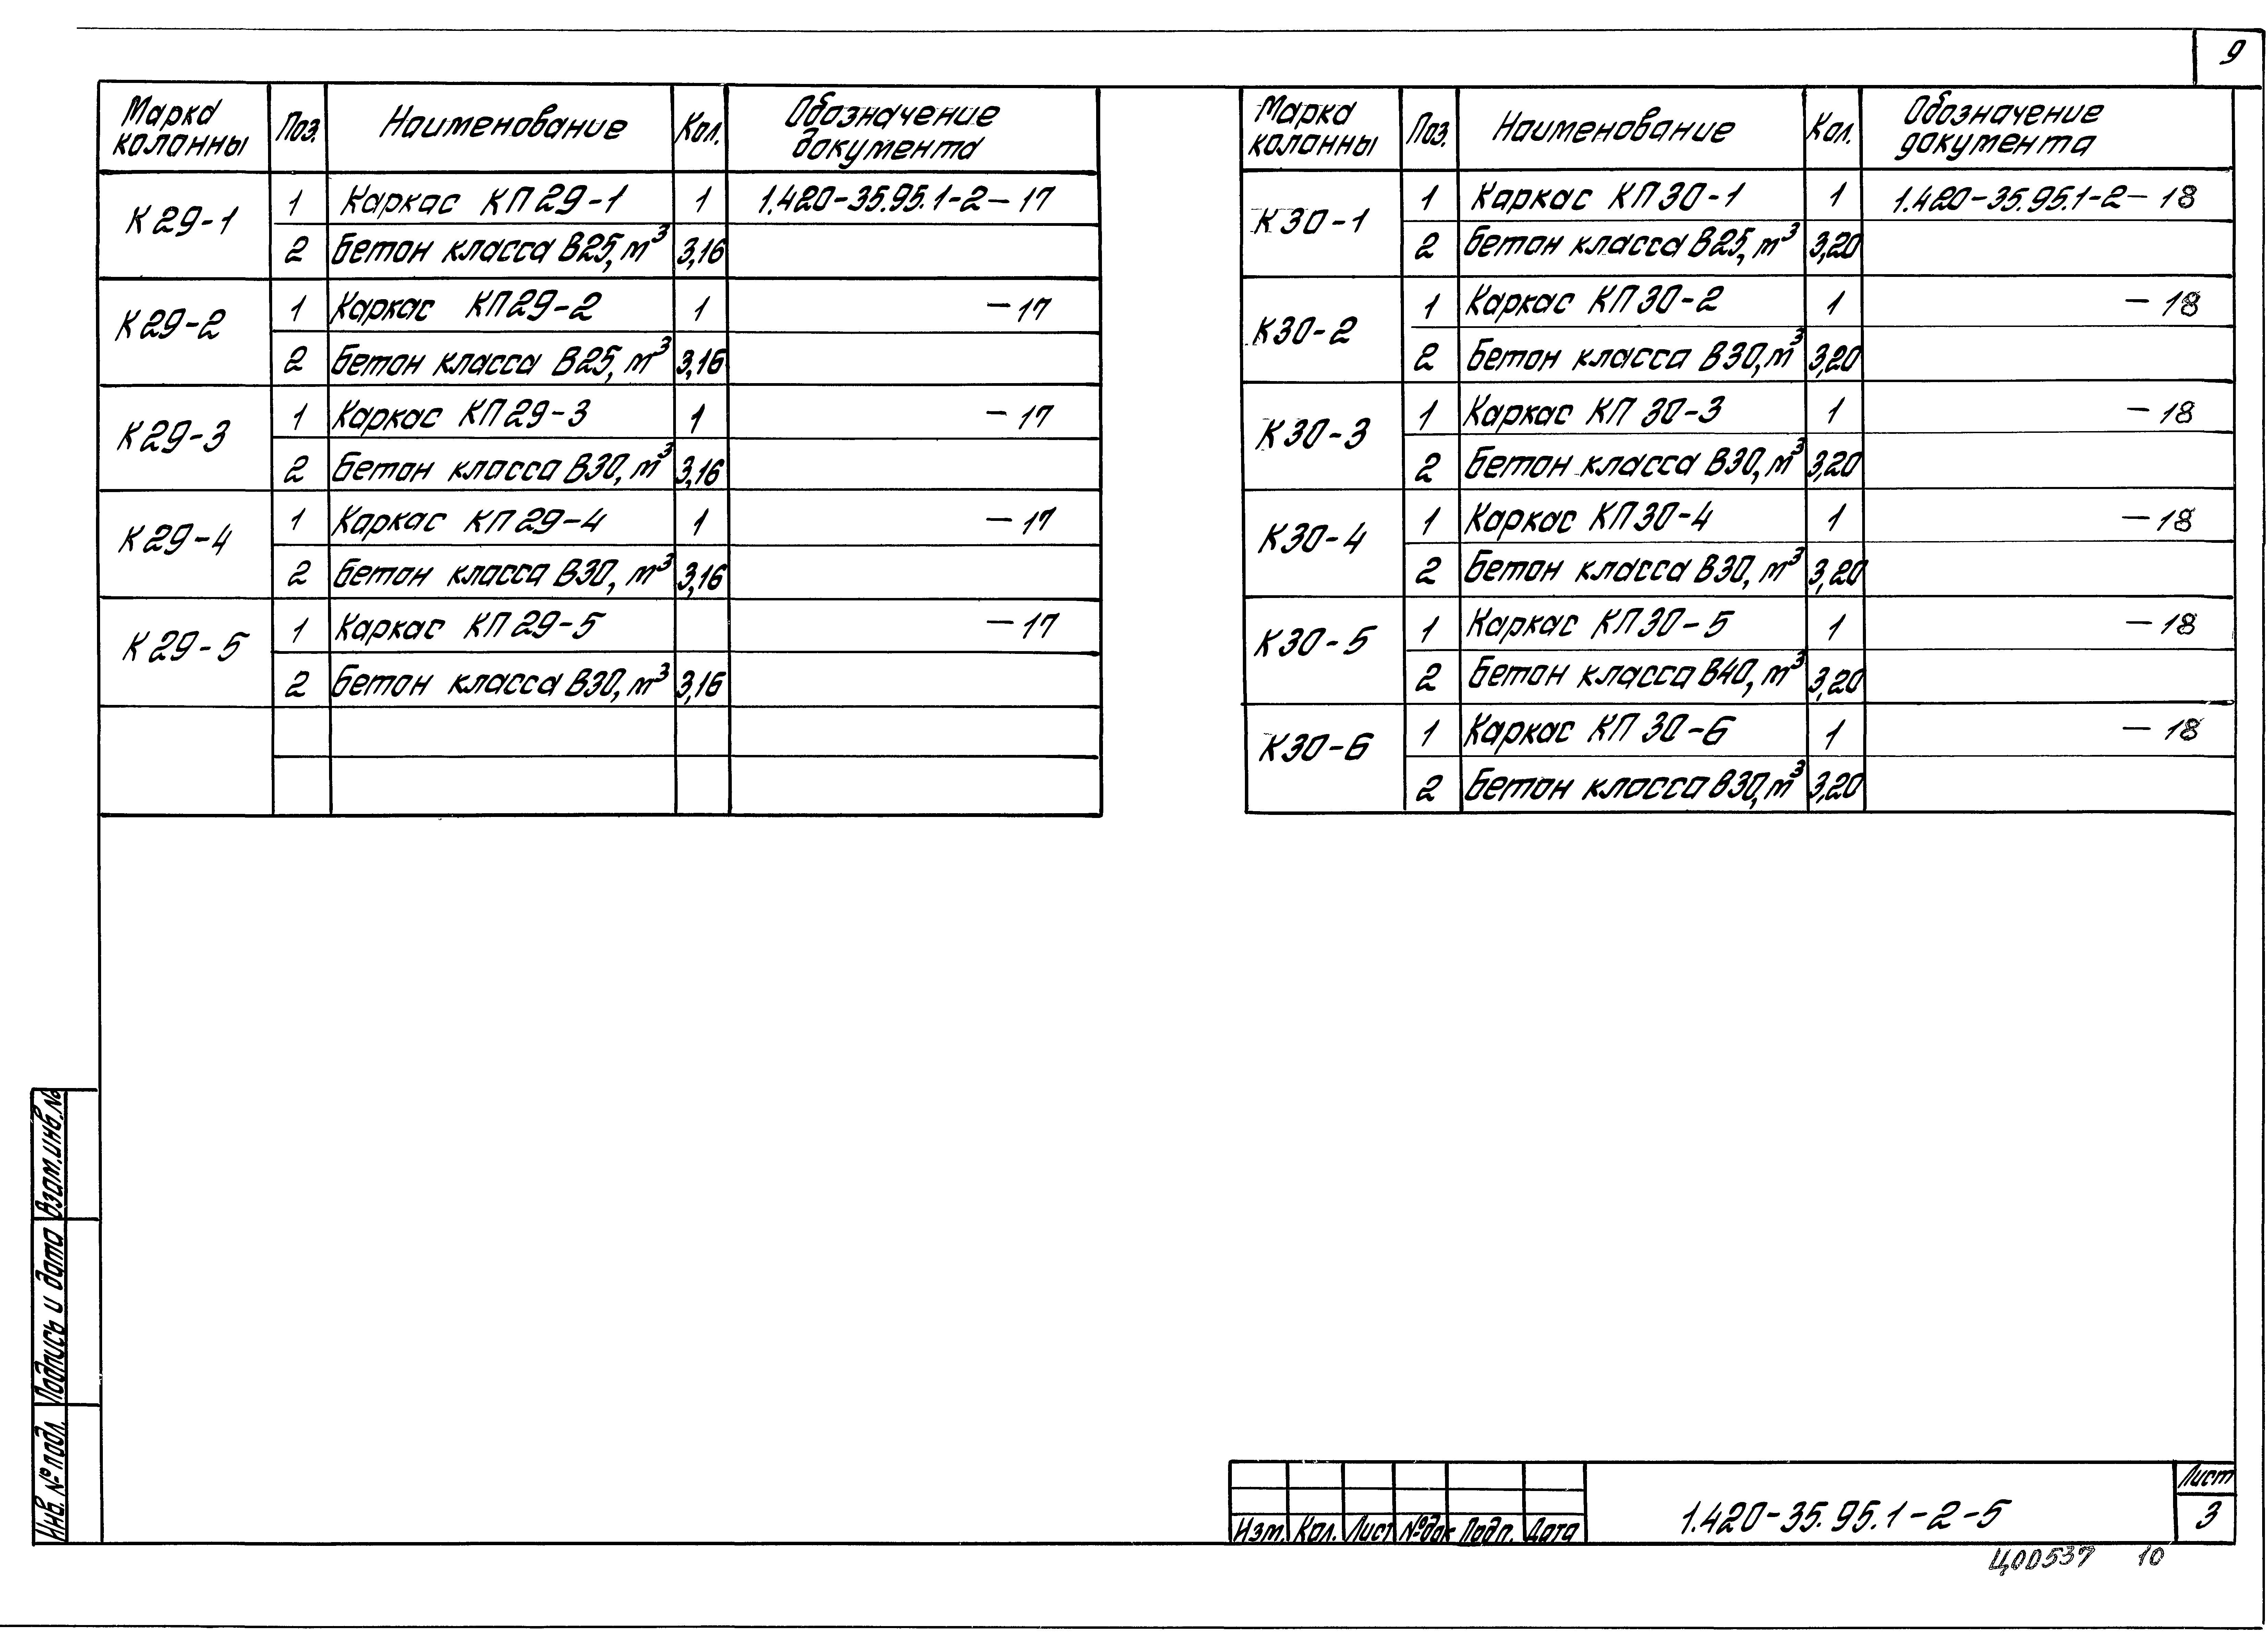 9
Марка колонны Поз. Наименование Кол. Обозначение документа
К29-1 1 Каркас КП29-1 1 1.420-35.95.1-2-17
2 Бетон класса В25, м³ 3,16
К29-2 1 Каркас КП29-2 1 -17
2 Бетон класса В25, м³ 3,16
К29-3 1 Каркас КП29-3 1 -17
2 Бетон класса В30, м³ 3,16
К29-4 1 Каркас КП29-4 1 -17
2 Бетон класса В30, м³ 3,16
К29-5 1 Каркас КП29-5 -17
2 Бетон класса В30, м³ 3,16
Марка колонны Поз. Наименование Кол. Обозначение документа
К30-1 1 Каркас КП30-1 1 1.420-35.95.1-2-18
2 Бетон класса В25, м³ 3,20
К30-2 1 Каркас КП30-2 1 -18
2 Бетон класса В30, м³ 3,20
К30-3 1 Каркас КП30-3 1 -18
2 Бетон класса В30, м³ 3,20
К30-4 1 Каркас КП30-4 1 -18
2 Бетон класса В30, м³ 3,20
К30-5 1 Каркас КП30-5 1 -18
2 Бетон класса В40, м³ 3,20
К30-6 1 Каркас КП30-6 1 -18
2 Бетон класса В30, м³ 3,20
Взам.инв.№
Подпись и дата
Инв. № подл.
Изм. Кол. Лист №док Подп. Дата
1.420-35.95.1-2-5
Лист
3
Ц00537 10